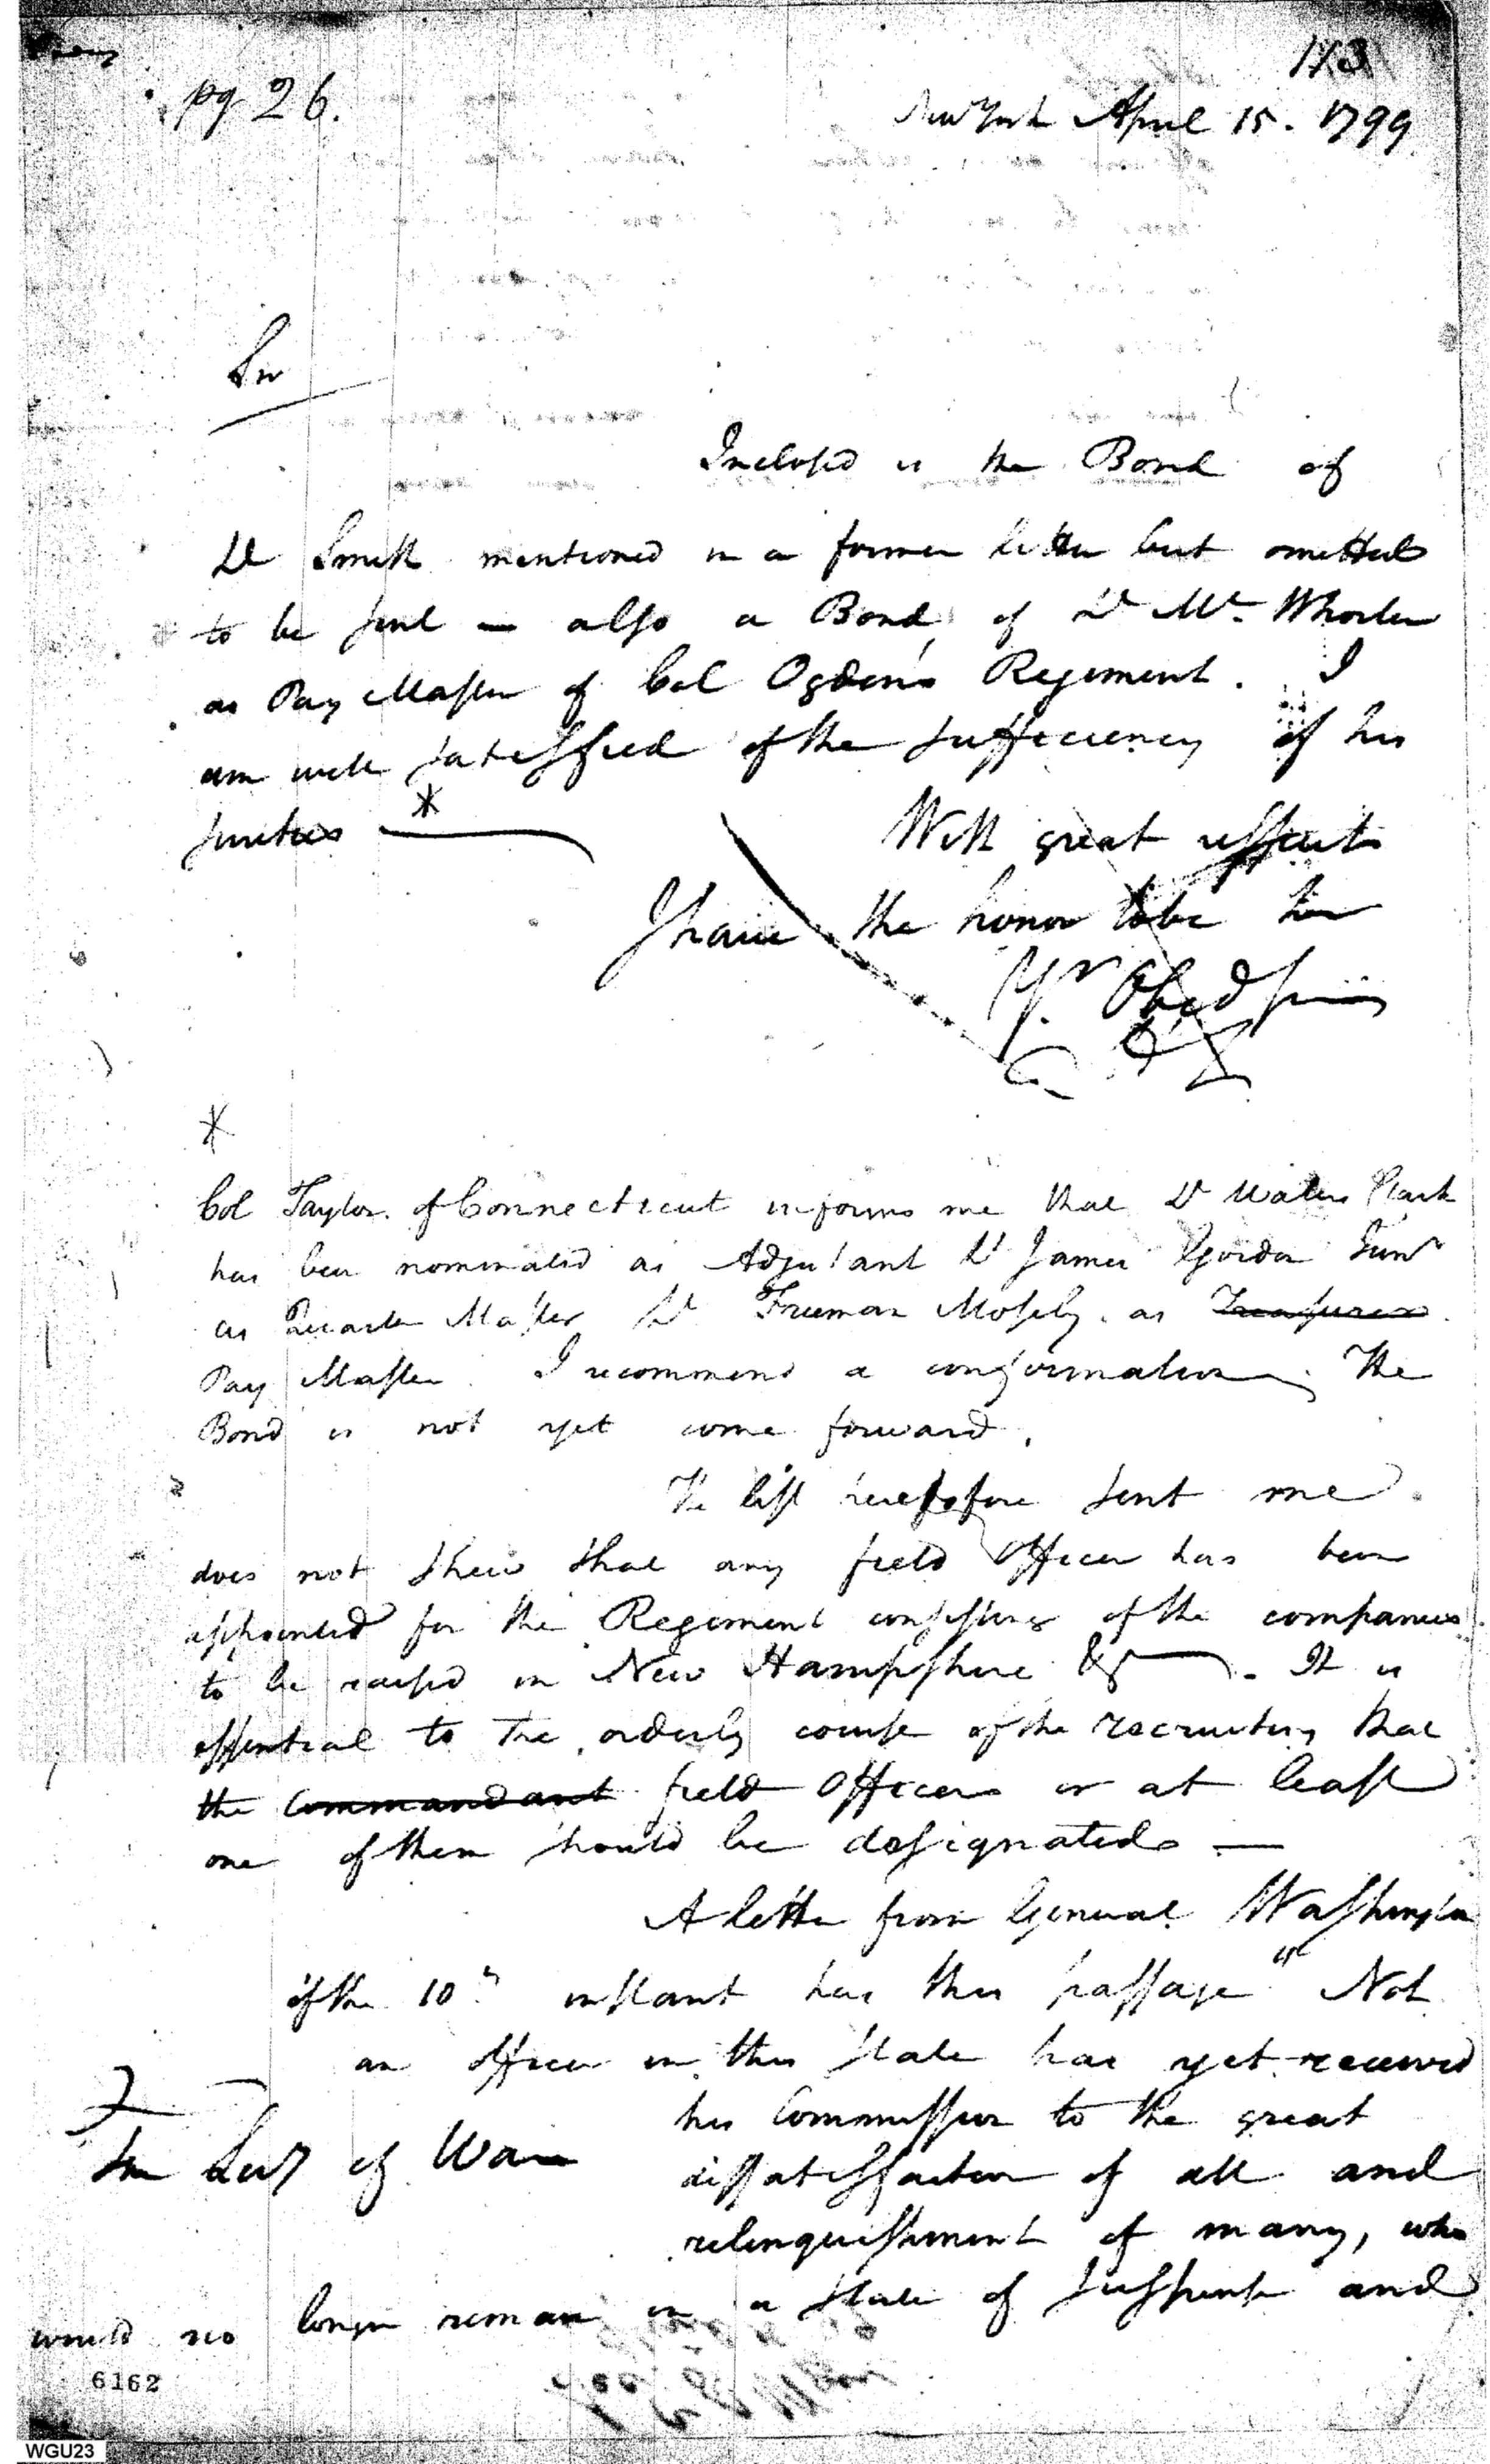 173
pg 26.
New York April 15. 1799
Sir
Inclosed is the Bond of
Lt Smith mentioned in a former letter but omitted
to be sent — also a Bond of Lt Mc. Whorter
as Pay Master of Col Ogden's Regiment. I
am well satisfied of the sufficiency of his
sureties * —
With great respect
I have the honor to be Sir
Yr. Obed ser
*
Col Taylor of Connecticut informs me that Lt Waters Clark
has been nominated as Adjutant Lt James Gordon Junr
as Quarter Master Lt Freeman Mosely. as Treasurer
Pay Master. I recommend a confirmation. The
Bond is not yet come forward.
The list heretofore sent me
does not shew that any field Officer has been
appointed for the Regiment consisting of the companies
to be raised in New Hampshire &c —. It is
essential to the orderly course of the recruiting that
the Commandant field Officers or at least
one of them should be designated —
A letter from General Washington
of the 10th instant has this passage "Not
an officer in this State has yet received
his Commission to the great
dissatisfaction of all and
relinquishment of many, who
would no longer remain in a state of suspense and
The Secy of War
6162
WGU23